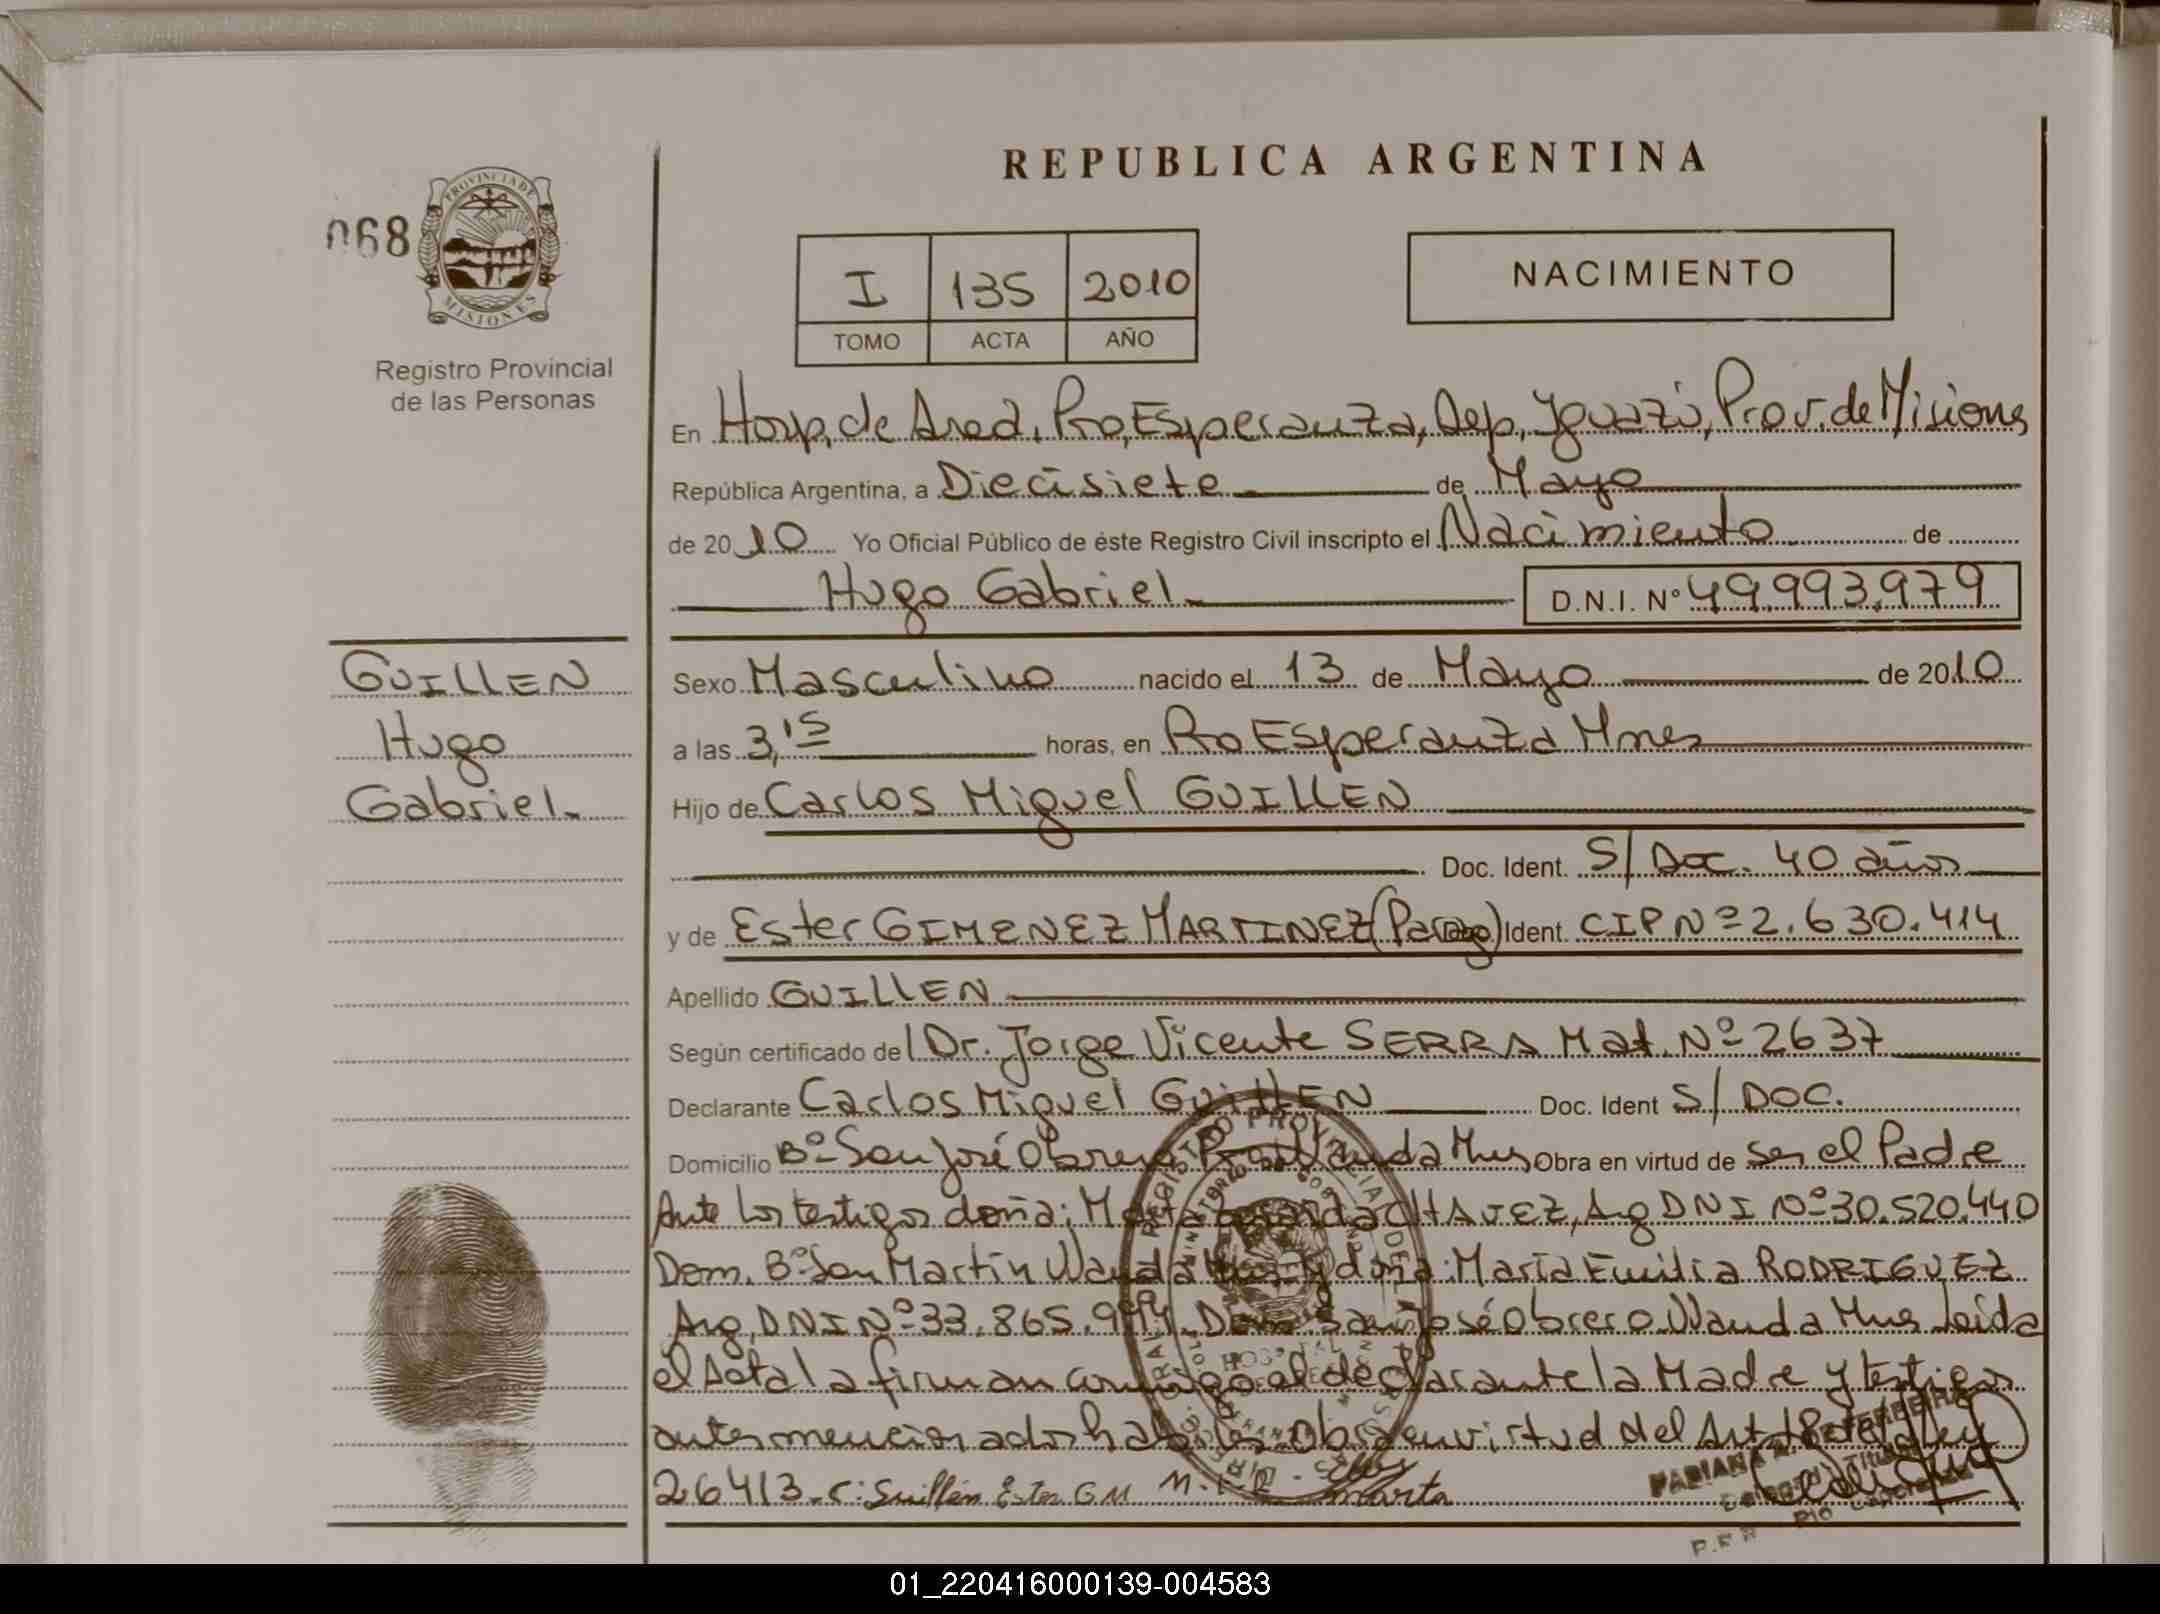 REPUBLICA ARGENTINA
068
PROVINCIA DE
MISIONES
Registro Provincial
de las Personas
I 135 2010
TOMO ACTA AÑO
NACIMIENTO
En Hosp. de Area. Pto Esperanza, Dep. Iguazú, Prov. de Misiones
República Argentina, a Diecisiete de Mayo
de 2010 Yo Oficial Público de éste Registro Civil inscripto el Nacimiento de
Hugo Gabriel D.N.I. Nº 49.993.979
GUILLEN
Hugo
Gabriel
Sexo Masculino nacido el 13 de Mayo de 2010
a las 3,15 horas, en Pto Esperanza Mnes
Hijo de Carlos Miguel GUILLEN
Doc. Ident. S/ Doc. 40 años
y de Ester GIMENEZ MARTINEZ (Parag) Ident. CIP Nº 2.630.414
Apellido GUILLEN
Según certificado del Dr. Jorge Vicente SERRA Mat. Nº 2637
Declarante Carlos Miguel GUILLEN Doc. Ident S/ DOC.
Domicilio Bº San José Obrero Wanda Mnes Obra en virtud de ser el Padre
Ante los testigos doña: Marta CHAVEZ, Arg DNI Nº 30.520.440
Dom. Bº San Martín Wanda Mnes y doña: María Emilia RODRIGUEZ
Arg. DNI Nº 33.865.994 Dom. San José Obrero Wanda Mnes Leída
el Acta la firman conmigo el declarante la Madre y testigos
antes mencionados Obra en virtud del Art. de la Ley
26413. C: Guillén Ester GM M.E.R marta
01_220416000139-004583